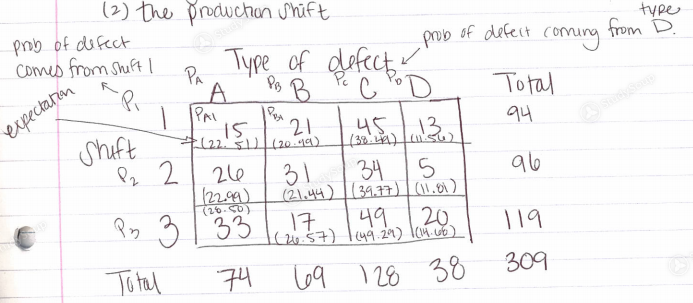 (2) the production shift
prob of defect
comes from shift 1
type
prob of defect coming from D.
Type of defect
expectation
P1
PA PB PC PD
A B C D Total
PA1 PB1
1 15 21 45 13 94
(22.51) (20.99) (38.94) (11.56)
Shift
P2 2 26 31 34 5 96
(22.99) (21.44) (39.77) (11.81)
(28.50)
P3 3 33 17 49 20 119
(26.57) (49.29) (14.63)
Total 74 69 128 38 309